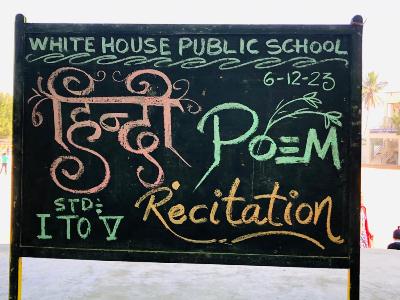 WHITE HOUSE PUBLIC SCHOOL
6-12-23
हिन्दी POEM
STD:
I TO V
Recitation